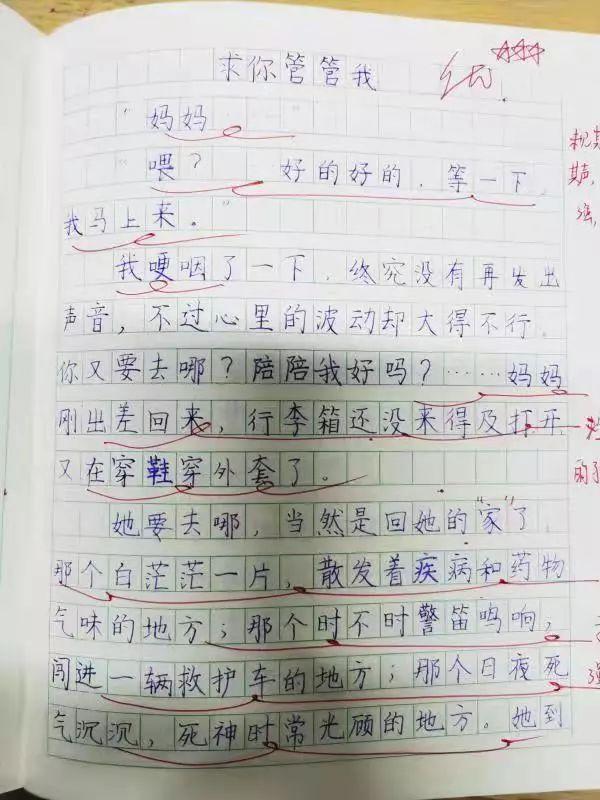 求你管管我
优
"妈妈。"
"喂？ 好的好的，等一下，
我马上来。"
我哽咽了一下，终究没有再发出
声音，不过心里的波动却大得不行。
你又要去哪？陪陪我好吗？……妈妈
刚出差回来，行李箱还没来得及打开
又在穿鞋穿外套了。
她要去哪，当然是回她的"家"了，
那个白茫茫一片，散发着疾病和药物
气味的地方；那个时不时警笛鸣响，
闯进一辆救护车的地方；那个日夜死
气沉沉，死神时常光顾的地方。她到